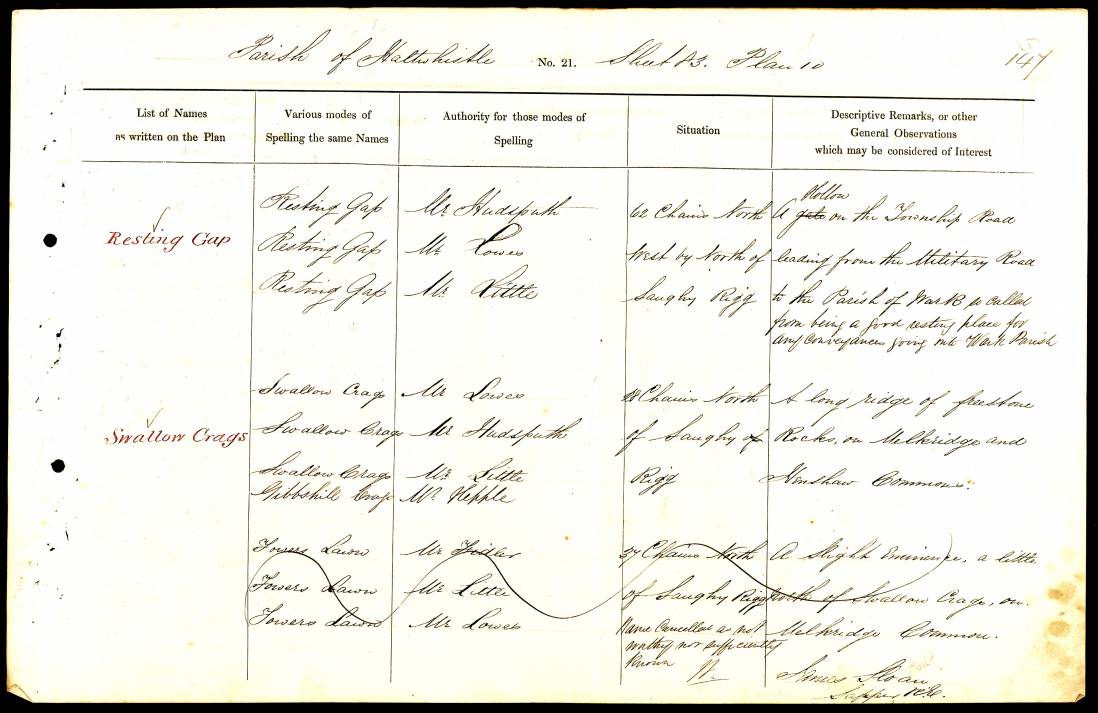 Parish of Haltwhistle No. 21. Sheet 83. Plan 10
147
List of Names
as written on the Plan
Various modes of
Spelling the same Names
Authority for those modes of
Spelling
Situation
Descriptive Remarks, or other
General Observations
which may be considered of Interest
Resting Gap
Resting Gap
Resting Gap
Resting Gap
Mr Hudspith
Mr. Lowes
Mr. Little
62 Chains North
West by North of
Saughy Rigg
Hollow
A gate on the Township Road
leading from the Military Road
to the Parish of Wark so called
from being a good resting place for
any conveyances going into Wark Parish
Swallow Crags
Swallow Crags
Swallow Crags
Swallow Crags
Gibbshill Crags
Mr Lowes
Mr Hudspith
Mr. Little
Mr Hepple
28 Chains North
of Saughy of
Rigg
A long ridge of freestone
Rocks, on Melkridge and
Henshaw Commons.
Towers Lawn
Towers Lawn
Towers Lawn
Mr Fidler
Mr Little
Mr Lowes
37 Chains North
of Saughy Rigg
Name Cancelled as not
worthy nor sufficiently
known
A Slight Eminence, a little
North of Swallow Crags, on
Melkridge Common.
James Sloan
Sapper R.E.